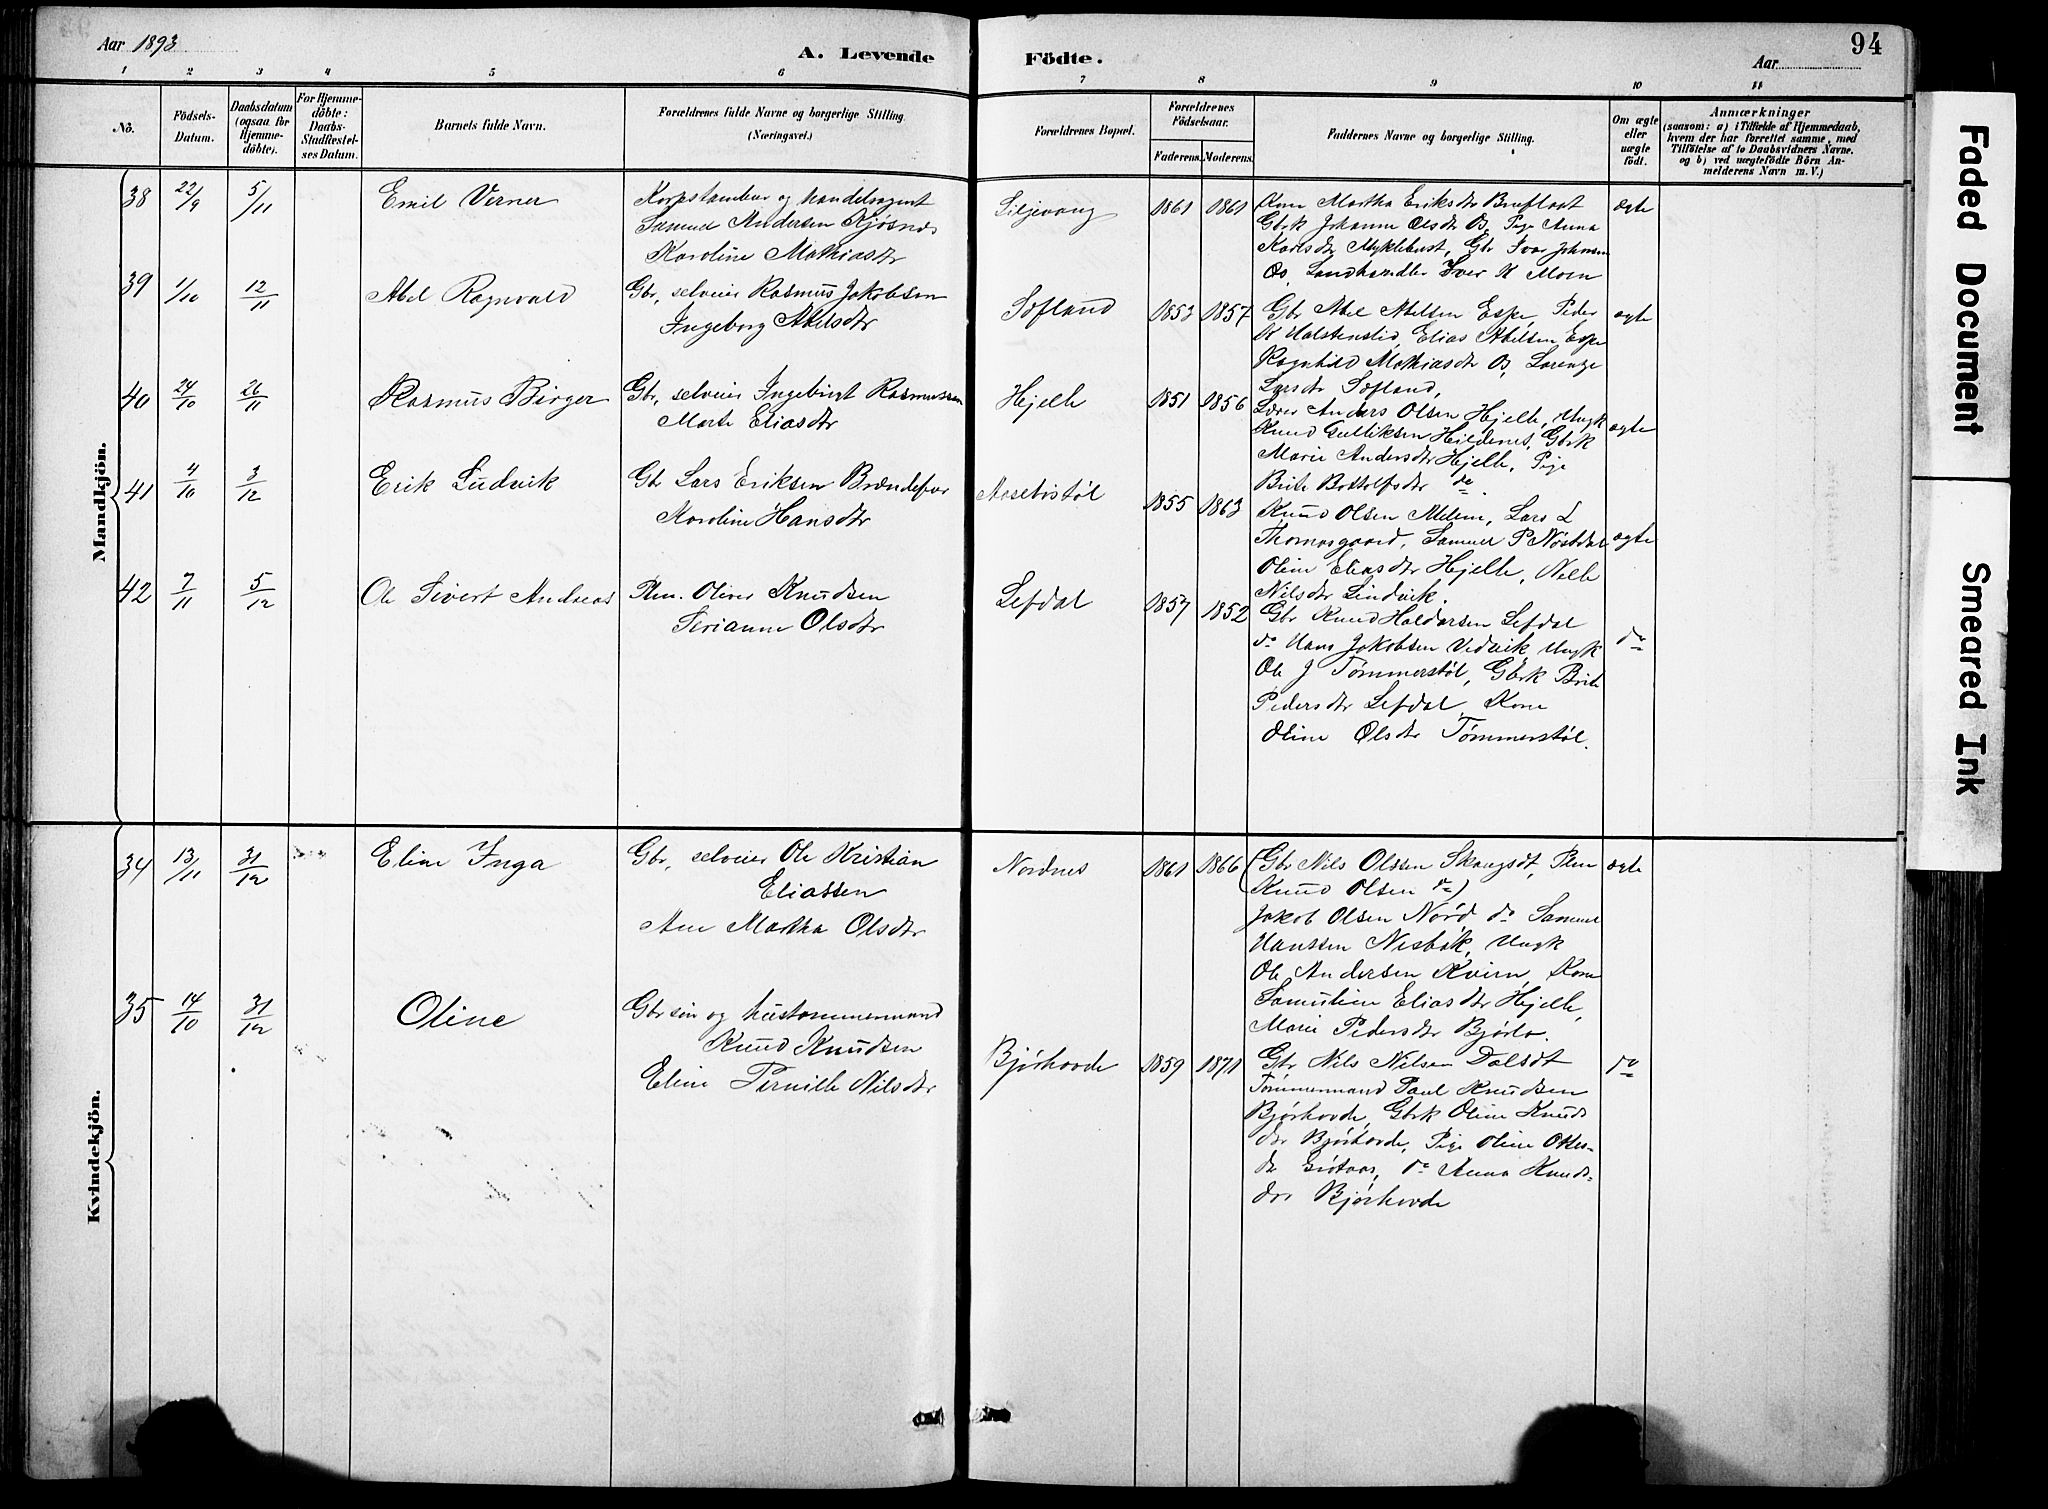 Aar 1893
A. Levende
Födte.
Aar
94
1 2 3 4 5 6 7 8 9 10 11
No.
Födsels-
Datum.
Daabsdatum
(ogsaa for
Hjemme-
döbte).
For Hjemme-
döbte:
Daabs-
Stadfestel-
ses Datum.
Barnets fulde Navn.
Forældrenes fulde Navne og borgerlige Stilling.
(Næringsvei.)
Forældrenes Bopæl.
Forældrenes
Födselsaar.
Faderens.
Moderens.
Faddernes Navne og borgerlige Stilling.
Om ægte
eller
uægte
födt.
Anmærkninger
(saasom: a) i Tilfælde af Hjemmedaab,
hvem der har forrettet samme, med
Tilföielse af to Daabsvidners Navne.
og b) ved uægtefödte Börn An-
melderens Navn m. V.)
Mandkjön.
38 22/9 5/11 Emil Verner
Korpstambur og handelsagent
Samuel Andersen Kjøsnes
Karoline Mathiasdtr
Siljevang 1861 1861
Kone Martha Eriksdtr
Gbrk Johanne Olsdtr Os, Pige Anna
Karlsdtr Myklebust, Gbr Ivar Johansen
Os, Landhandler Iver K Moen
ægte
39 1/10 12/11 Abel Ragnvald
Gbr, selveier Rasmus Jakobsen
Ingeborg Abelsdtr
Sofland 1853 1857
Gbr Abel Abelsen Espe, Peder
K Halstenslid, Elias Abelsen Espe
Ragnhild Mathiasdtr Os, Lorentze
Larsdtr Sofland,
ægte
40 24/10 26/11 Rasmus Birger
Gbr, selveier Ingebrigt Rasmussen
Marte Eliasdtr
Hjelle 1851 1856
Lærer Anders Olsen Hjelle, Ungk
Knud Gulliksen Hildenes, Gbrk
Marie Andersdtr Hjelle, Pige
Brite Bottolfsdtr do.
ægte
41 4/10 3/12 Erik Ludvik
Gbr Lars Eriksen
Karoline Hansdtr
1855 1863
Knud Olsen Melem, Lars L
Thomasgaard, Samuel P Nøstdal
Oline Eliasdtr Hjelle, Nelle
Nilsdtr Lindvik.
ægte
42 7/11 5/12 Ole Sivert Andreas
Pln. Oliver Knudsen
Serianne Olsdtr
Lefdal 1857 1852
Gbr Knud Haldorsen Lefdal
do Hans Jakobsen Vedvik, Ungk
Ole J Tømmerstøl, Gbrk Brite
Pedersdtr Lefdal, Kone
Oline Olsdtr Tømmerstøl.
do
Kvindekjön.
34 13/11 31/12 Eline Inga
Gbr, selveier Ole Kristian
Eliassen
Ane Martha Olsdtr
Nordnes 1861 1866
(Gbr Nils Olssen, Pln
Knud Olsen do)
Jakob Olsen Nord do Samuel
Hanssen Nesbøk, Ungk
Ole Andersen Kvien, Kone
Samuline Eliasdtr Hjelle,
Marie Pedersdtr Bjørlo.
ægte
35 14/10 31/12 Oline
Gbrsøn og hustømmermand
Knud Knudsen
Eline Pernille Nilsdtr
Bjørhovde 1859 1871
Gbr Nils Nilsen Dalsdt
Tømmermand Paul Knudsen
Bjørhovde, Gbrk Oline Knuds
dtr Bjørhovde, Pige Oline
do Anna Knuds-
dtr Bjørhovde
do
Faded Document
Smeared Ink